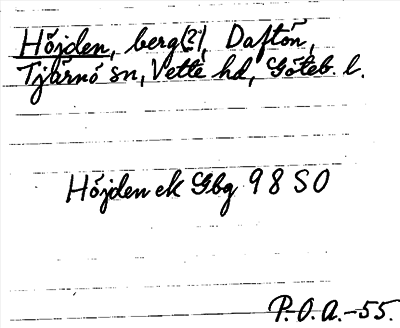 Höjden, berg(?), Daftön,
Tjärnö sn, Vette hd, Göteb. l.
Höjden ek Gbg 98 SO
P.O.A.-55.